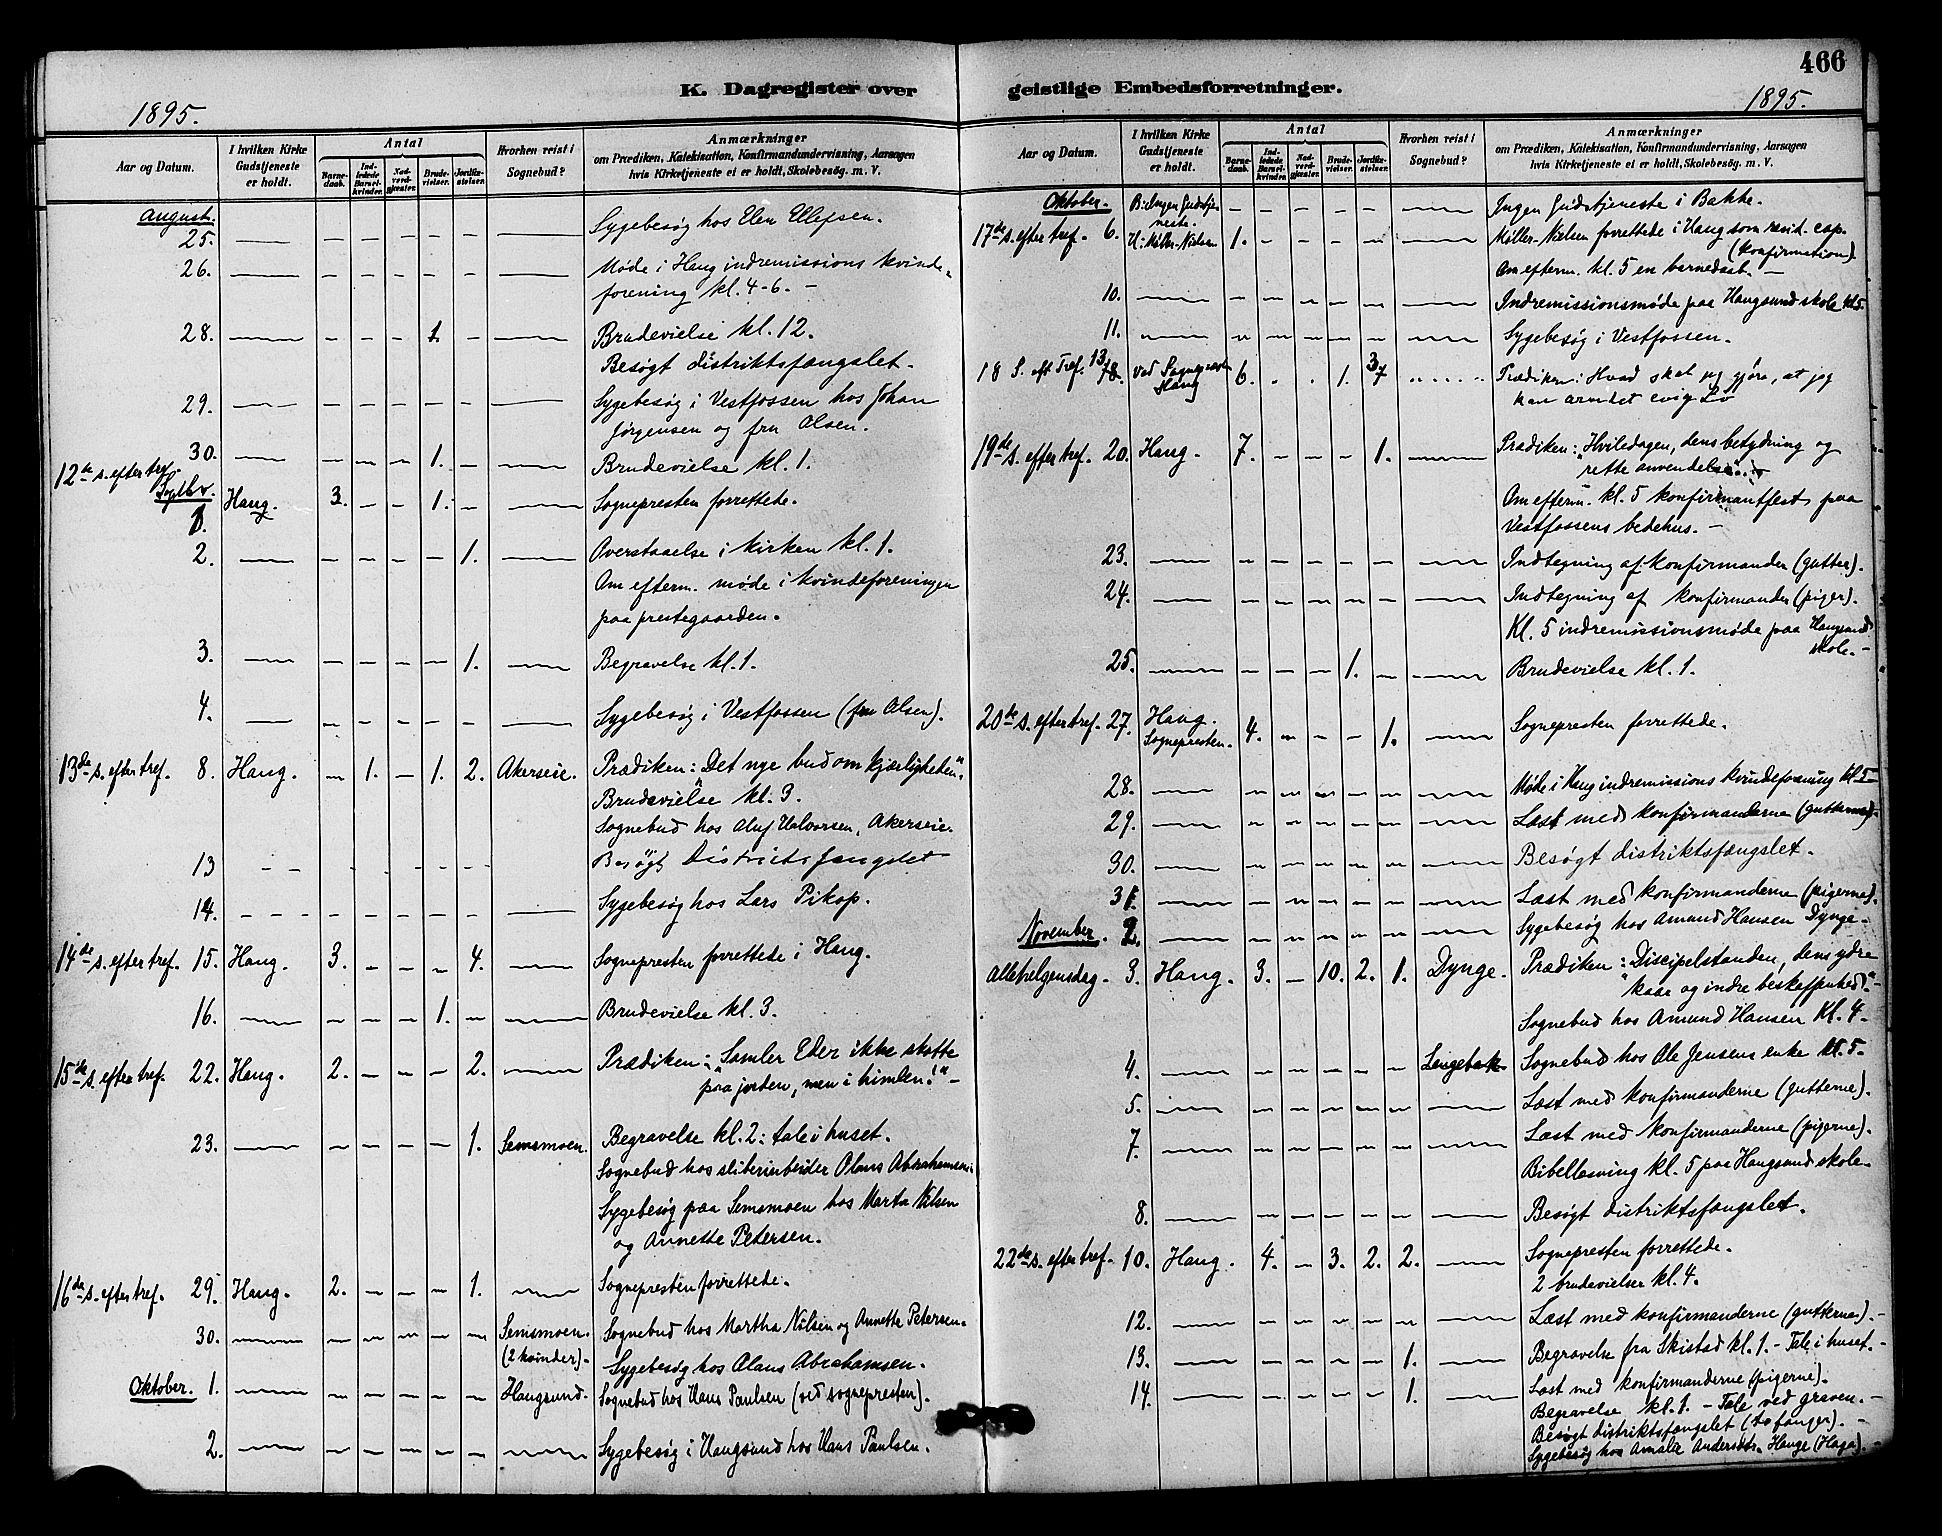 466
K. Dagregister over geistlige Embedsforretninger.
1895.
1895.
Aar og Datum.
I hvilken Kirke Gudstjeneste er holdt.
Antal
Barnedaab.
Indledede Barselkvinder.
Nadverdgjæster.
Brudevielser.
Jordfæstelser.
Hvorhen reist i Sognebud?
Anmærkninger
om Prædiken, Katekisation, Konfirmandundervisning, Aarsagen
hvis Kirketjeneste ei er holdt, Skolebesøg. m. V.
August.
25. Sygebesøg hos Elen Ellefsen.
26. Møde i Haug indremissions kvinde-
forening kl. 4-6. –
28. 1. Brudevielse kl. 12.
Besøgt distriktsfængslet.
29. Sygebesøg i Vestfossen hos Johan
Jørgensen og fru Olsen.
30. 1. Brudevielse kl. 1.
12te s. efter tref.
Septbr. 1. Haug. 3. – – 1. – Sognepresten forrettede.
2. 1. Overstaaelse i kirken kl. 1.
Om efterm. møde i kvindeforeningen
paa prestegaarden.
3. 1. Begravelse kl. 1.
4. Sygebesøg i Vestfossen (fru Olsen).
13de s. efter tref. 8. Haug. – 1. – 1. 2. Akerseie. Prædiken: „Det nye bud om kjærligheden“.
Brudevielse kl. 3.
Sognebud hos Oluf Halvorsen, Akerseie.
13 Besøgt Distriktsfængslet
14. Sygebesøg hos Lars Pikop.
14de s. efter tref. 15. Haug. 3. – – – 4. Sognepresten forrettede i Haug.
16. 1. Brudevielse kl. 3.
15de s. efter tref. 22. Haug. 2. – – – 2. Prædiken: „Samler Eder ikke skatte
paa jorden, men i himlen!“ –
23. 1. Semsmoen. Begravelse kl. 2: tale i huset.
Sognebud hos sliberiarbeider Olaus Abrahamsen
Sygebesøg paa Semsmoen hos Marta Nilsen
og Annette Petersen.
16de s. efter tref. 29. Haug. 2. – – – 1. Sognepresten forrettede.
30. Semsmoen. Sognebud hos Martha Nilsen og Annette Petersen.
(2 kvinder). Sygebesøg hos Olaus Abrahamsen.
Oktober. 1. Haugsund. Sognebud hos Hans Paulsen (ved sognepresten).
2. Sygebesøg i Haugsund hos Hans Paulsen.
Aar og Datum.
I hvilken Kirke Gudstjeneste er holdt.
Antal
Barnedaab.
Indledede Barselkvinder.
Nadverdgjæster.
Brudevielser.
Jordfæstelser.
Hvorhen reist i Sognebud?
Anmærkninger
om Prædiken, Katekisation, Konfirmandundervisning, Aarsagen
hvis Kirketjeneste ei er holdt, Skolebesøg. m. V.
Oktober. B: Ingen Gudstjeneste. Ingen Gudstjeneste i Bakke.
17de s. efter tref. 6. H: Møller-Nielsen 1. Møller-Nielsen forrettede i Haug som resid. cap.
(konfirmation).
Om efterm. kl. 5 en barnedaab. –
10. Indremissionsmøde paa Haugsund skole kl 5.
11. Sygebesøg i Vestfossen.
18 S. eft Tref. 13. Ved Sognepresten Haug 6. 1. Prædiken: Hvad skal jeg gjøre, at jeg
kan arve det evig Liv
19de s. efter tref. 20. Haug. 7. – – – 1. Prædiken: „Hviledagen, dens betydning og
rette anvendelse“.
Om efterm. kl. 5 konfirmantfest paa
Vestfossens bedehus. –
23. Indtegning af konfirmander (gutter).
24. Indtegning af konfirmander (piger).
Kl. 5 indremissionsmøde paa Haugsund
skole. –
25. 1. Brudevielse kl. 1.
20de s. efter tref. 27. Haug. Sognepresten. 4. – – – 1. Sognepresten forrettede.
28. Møde i Haug indremissions kvindeforening kl 5
29. Læst med konfirmanderne (gutterne).
30. Besøgt distriktsfængslet.
31. Læst med konfirmanderne (pigerne).
November. 2. Sygebesøg hos Amund Hansen Dynge.
Allehelgensdag. 3. Haug. 3. – 10. 2. 1. Dynge. Prædiken: „Discipelstanden, dens ydre
kaar og indre beskaffenhed“.
Sognebud hos Amund Hansen kl. 4.
4. Lengebak Sognebud hos Ole Jensens enke kl. 5.
5. Læst med konfirmanderne (gutterne).
7. Læst med konfirmanderne (pigerne).
Bibellæsning kl. 5 paa Haugsund skole.
8. Besøgt distriktsfængslet.
22de s. efter tref. 10. Haug. 4. – 3. 2. 2. Sognepresten forrettede.
2 brudevielser kl. 4.
12. Læst med konfirmanderne (gutterne). –
13. 1. Begravelse fra Skistad kl. 1. – Tale i huset. –
14. 1. Læst med konfirmanderne (pigerne).
Begravelse kl. 1. – Tale ved graven. –
Besøgt distriktsfængslet (to fanger). –
Sygebesøg hos Amalie Andersdtr. Hauge (Haga). –